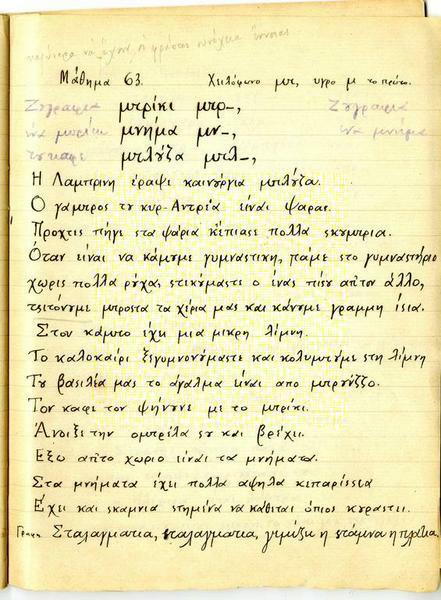 Μάθημα 63. Χειλόφωνο μπ, υγρο μ το πρώτο.
Ζογραφια μπρίκι μπρ–, Ζογραφια
ένα μπρίκι μνήμα μν–, ένα μνήμα
του καφε μπλύζα μπλ–,
Η Λαμπρινη έραψε καινούργια μπλύζα.
Ο γαμπρος τυ κυρ-Αντρέα είναι ψαρας.
Προχτες πήγε στα ψάρια κ' έπιασε πολλα σκυμπρια.
Όταν είναι να κάμυμε γυμναστικη, πάμε στο γυμναστήριο
χωρις πολλα ρύχα, στεκύμαστε ο ένας πίσυ απ' τον άλλο,
τσιτόνυμε μπροστα τα χέρια μας και κάνυμε γραμμη ίσια.
Στον κάμπο έχει μια μικρη λίμνη.
Το καλοκαίρι ξεγυμνονύμαστε και κολυμπύμε στη λίμνη
Τυ βασιλέα μας το άγαλμα είναι απο μπρύντζο.
Τον καφε τον ψήνυνε με το μπρίκι.
Άνοιξε την ομπρέλα συ και βρέχει.
Εξω απ' το χωριο είναι τα μνήματα.
Στα μνήματα έχει πολλα αψηλα κιπαρίσσια
Έχει και σκαμνια στημένα να κάθεται όπιος κυραστει.
Γραφη Σταλαγματια, σταλαγματια, γεμίζει η στάμνα η πλατια.